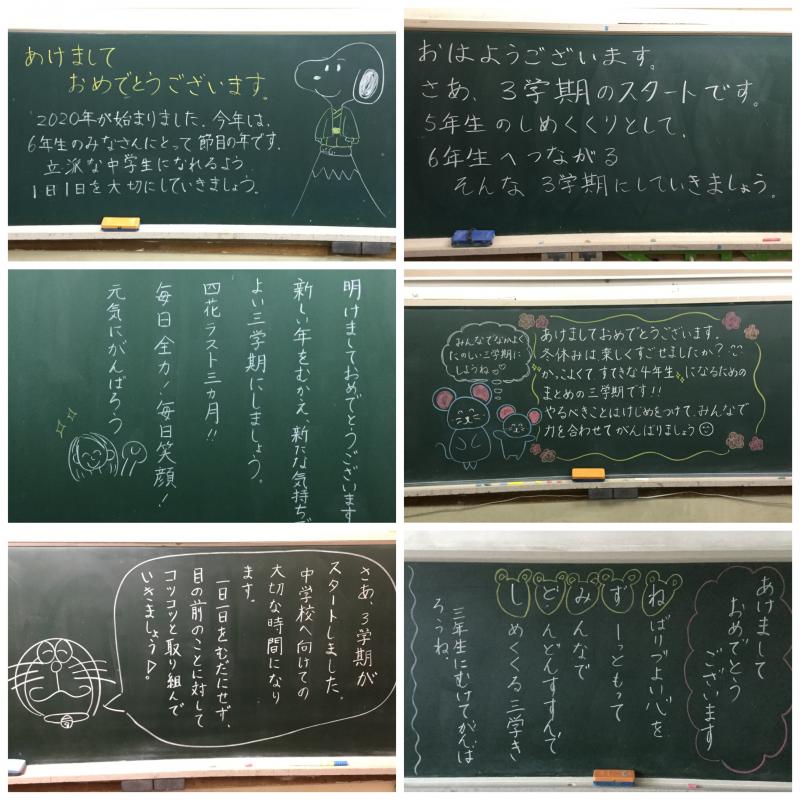 あけまして
おめでとうございます。
2020年が始まりました。今年は、
6年生のみなさんにとって節目の年です。
立派な中学生になれるよう
1日1日を大切にしていきましょう。
おはようございます。
さあ、3学期のスタートです。
5年生のしめくくりとして、
6年生へつながる
そんな3学期にしていきましょう。
明けましておめでとうございます
新しい年をむかえ、新たな気持ちで
よい三学期にしましょう。
四花ラスト三カ月!!
毎日全力!毎日笑顔!
元気にがんばろう
みんなでなかよく
たのしい三学期に
しようね♡
あけましておめでとうございます。
冬休みは楽しくすごせましたか?
かっこよくてすてきな4年生になるための
まとめの三学期です!!
やるべきことはけじめをつけて、みんなで
力を合わせてがんばりましょう
さあ、3学期が
スタートしました。
中学校へ向けての
大切な時間になり
ます。
一日一日をむだにせず、
目の前のことに対して
コツコツと取り組んで
いきましょう。
あけまして
おめでとう
ございます
ねばりづよい心を
ずーっともって
みんなで
どんどんすすんで
しめくくる三学き
三年生にむけてがんば
ろうね。